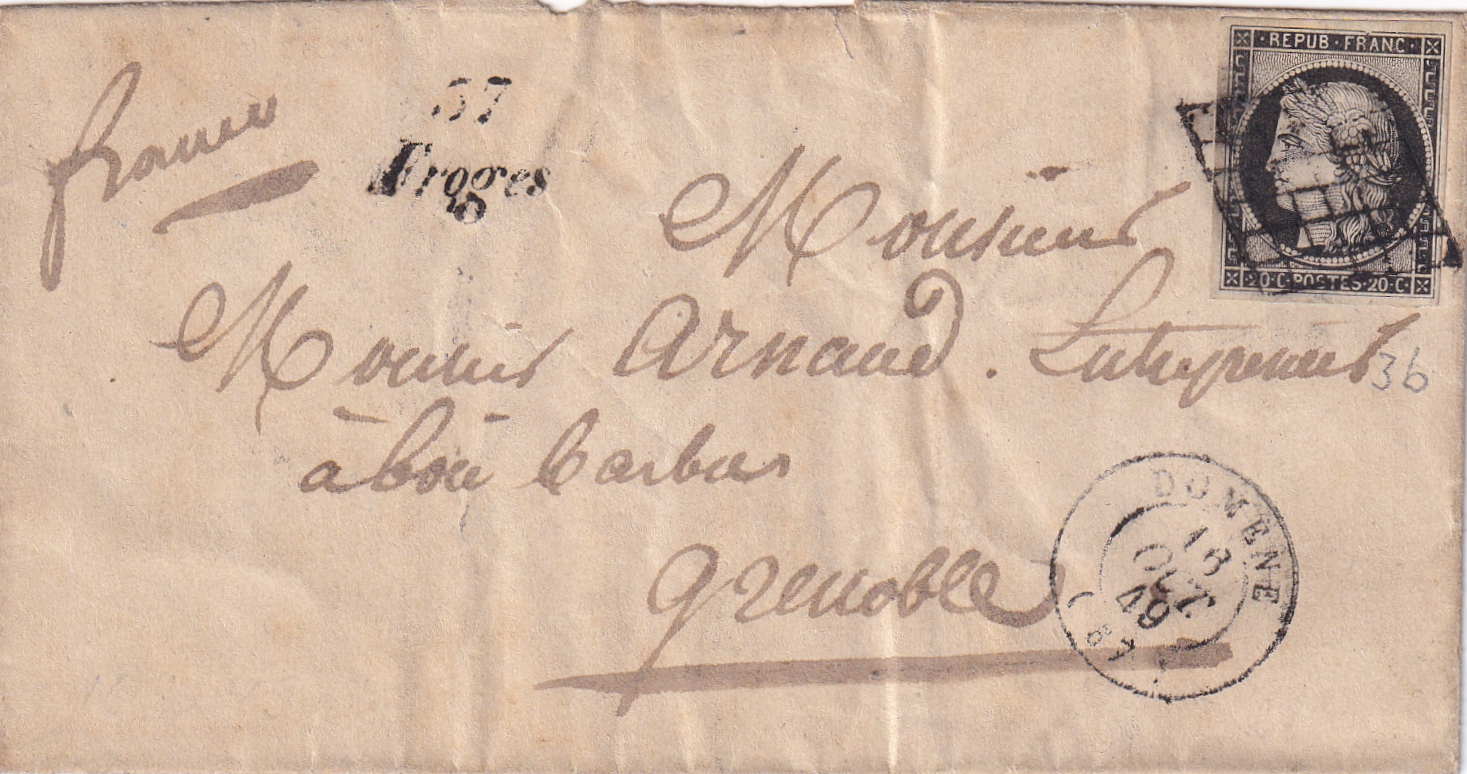 REPUB·FRANC
20·C·POSTES·20·C
franco
37
Froges
Monsieur
Monsieur Arnaud. Entrepreneur
36
à
Grenoble
DOMENE
18
OCT.
49
(37)